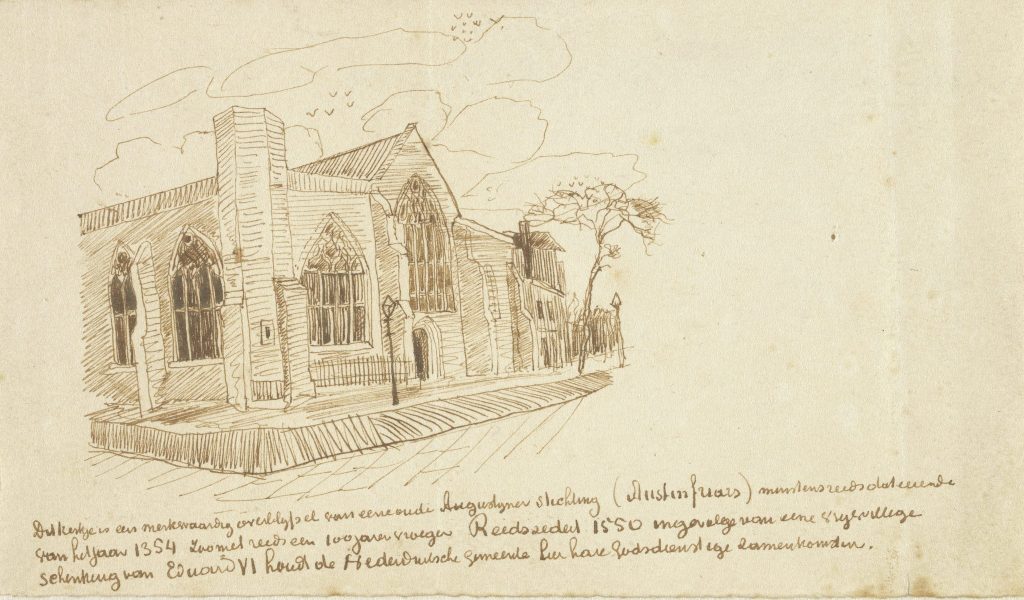 Dit kerkje is een merkwaardig overblijfsel van eene oude Augustyner stichting (Austinfriars) minstens reeds dateerende
van het jaar 1354 zoo niet reeds een 100 jaren vroeger Reeds sedert 1550 ingevolge van eene vrijwillige
schenking van Eduard VI houdt de Nederduitsche gemeente hier hare godsdienstige zamenkomsten.